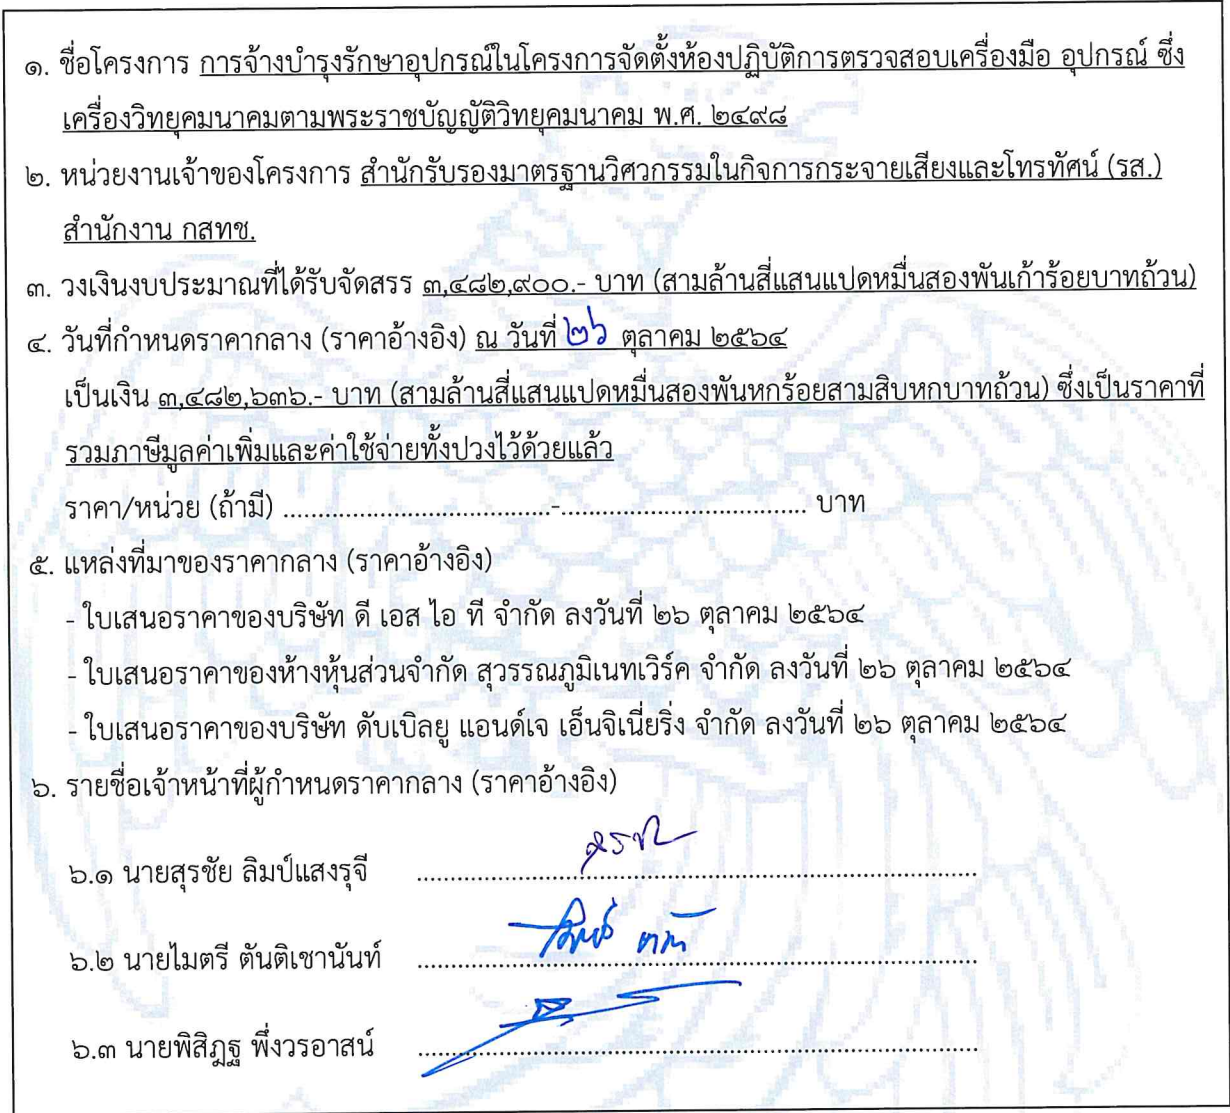 ๑. ชื่อโครงการ การจ้างบำรุงรักษาอุปกรณ์ในโครงการจัดตั้งห้องปฏิบัติการตรวจสอบเครื่องมือ อุปกรณ์ ซึ่ง
เครื่องวิทยุคมนาคมตามพระราชบัญญัติวิทยุคมนาคม พ.ศ. ๒๔๙๘
๒. หน่วยงานเจ้าของโครงการ สำนักรับรองมาตรฐานวิศวกรรมในกิจการกระจายเสียงและโทรทัศน์ (รส.)
สำนักงาน กสทช.
๓. วงเงินงบประมาณที่ได้รับจัดสรร ๓,๔๘๒,๙๐๐.- บาท (สามล้านสี่แสนแปดหมื่นสองพันเก้าร้อยบาทถ้วน)
๔. วันที่กำหนดราคากลาง (ราคาอ้างอิง) ณ วันที่ ๒๖ ตุลาคม ๒๕๖๔
เป็นเงิน ๓,๔๘๒,๖๓๖.- บาท (สามล้านสี่แสนแปดหมื่นสองพันหกร้อยสามสิบหกบาทถ้วน) ซึ่งเป็นราคาที่
รวมภาษีมูลค่าเพิ่มและค่าใช้จ่ายทั้งปวงไว้ด้วยแล้ว
ราคา/หน่วย (ถ้ามี) .......................................-.................................... บาท
๕. แหล่งที่มาของราคากลาง (ราคาอ้างอิง)
- ใบเสนอราคาของบริษัท ดี เอส ไอ ที จำกัด ลงวันที่ ๒๖ ตุลาคม ๒๕๖๔
- ใบเสนอราคาของห้างหุ้นส่วนจำกัด สุวรรณภูมิเนทเวิร์ค จำกัด ลงวันที่ ๒๖ ตุลาคม ๒๕๖๔
- ใบเสนอราคาของบริษัท ดับเบิลยู แอนด์เจ เอ็นจิเนี่ยริ่ง จำกัด ลงวันที่ ๒๖ ตุลาคม ๒๕๖๔
๖. รายชื่อเจ้าหน้าที่ผู้กำหนดราคากลาง (ราคาอ้างอิง)
๖.๑ นายสุรชัย ลิมป์แสงรุจี ....................................................................................
๖.๒ นายไมตรี ตันติเชานันท์ ....................................................................................
๖.๓ นายพิสิฎฐ พึ่งวรอาสน์ ....................................................................................